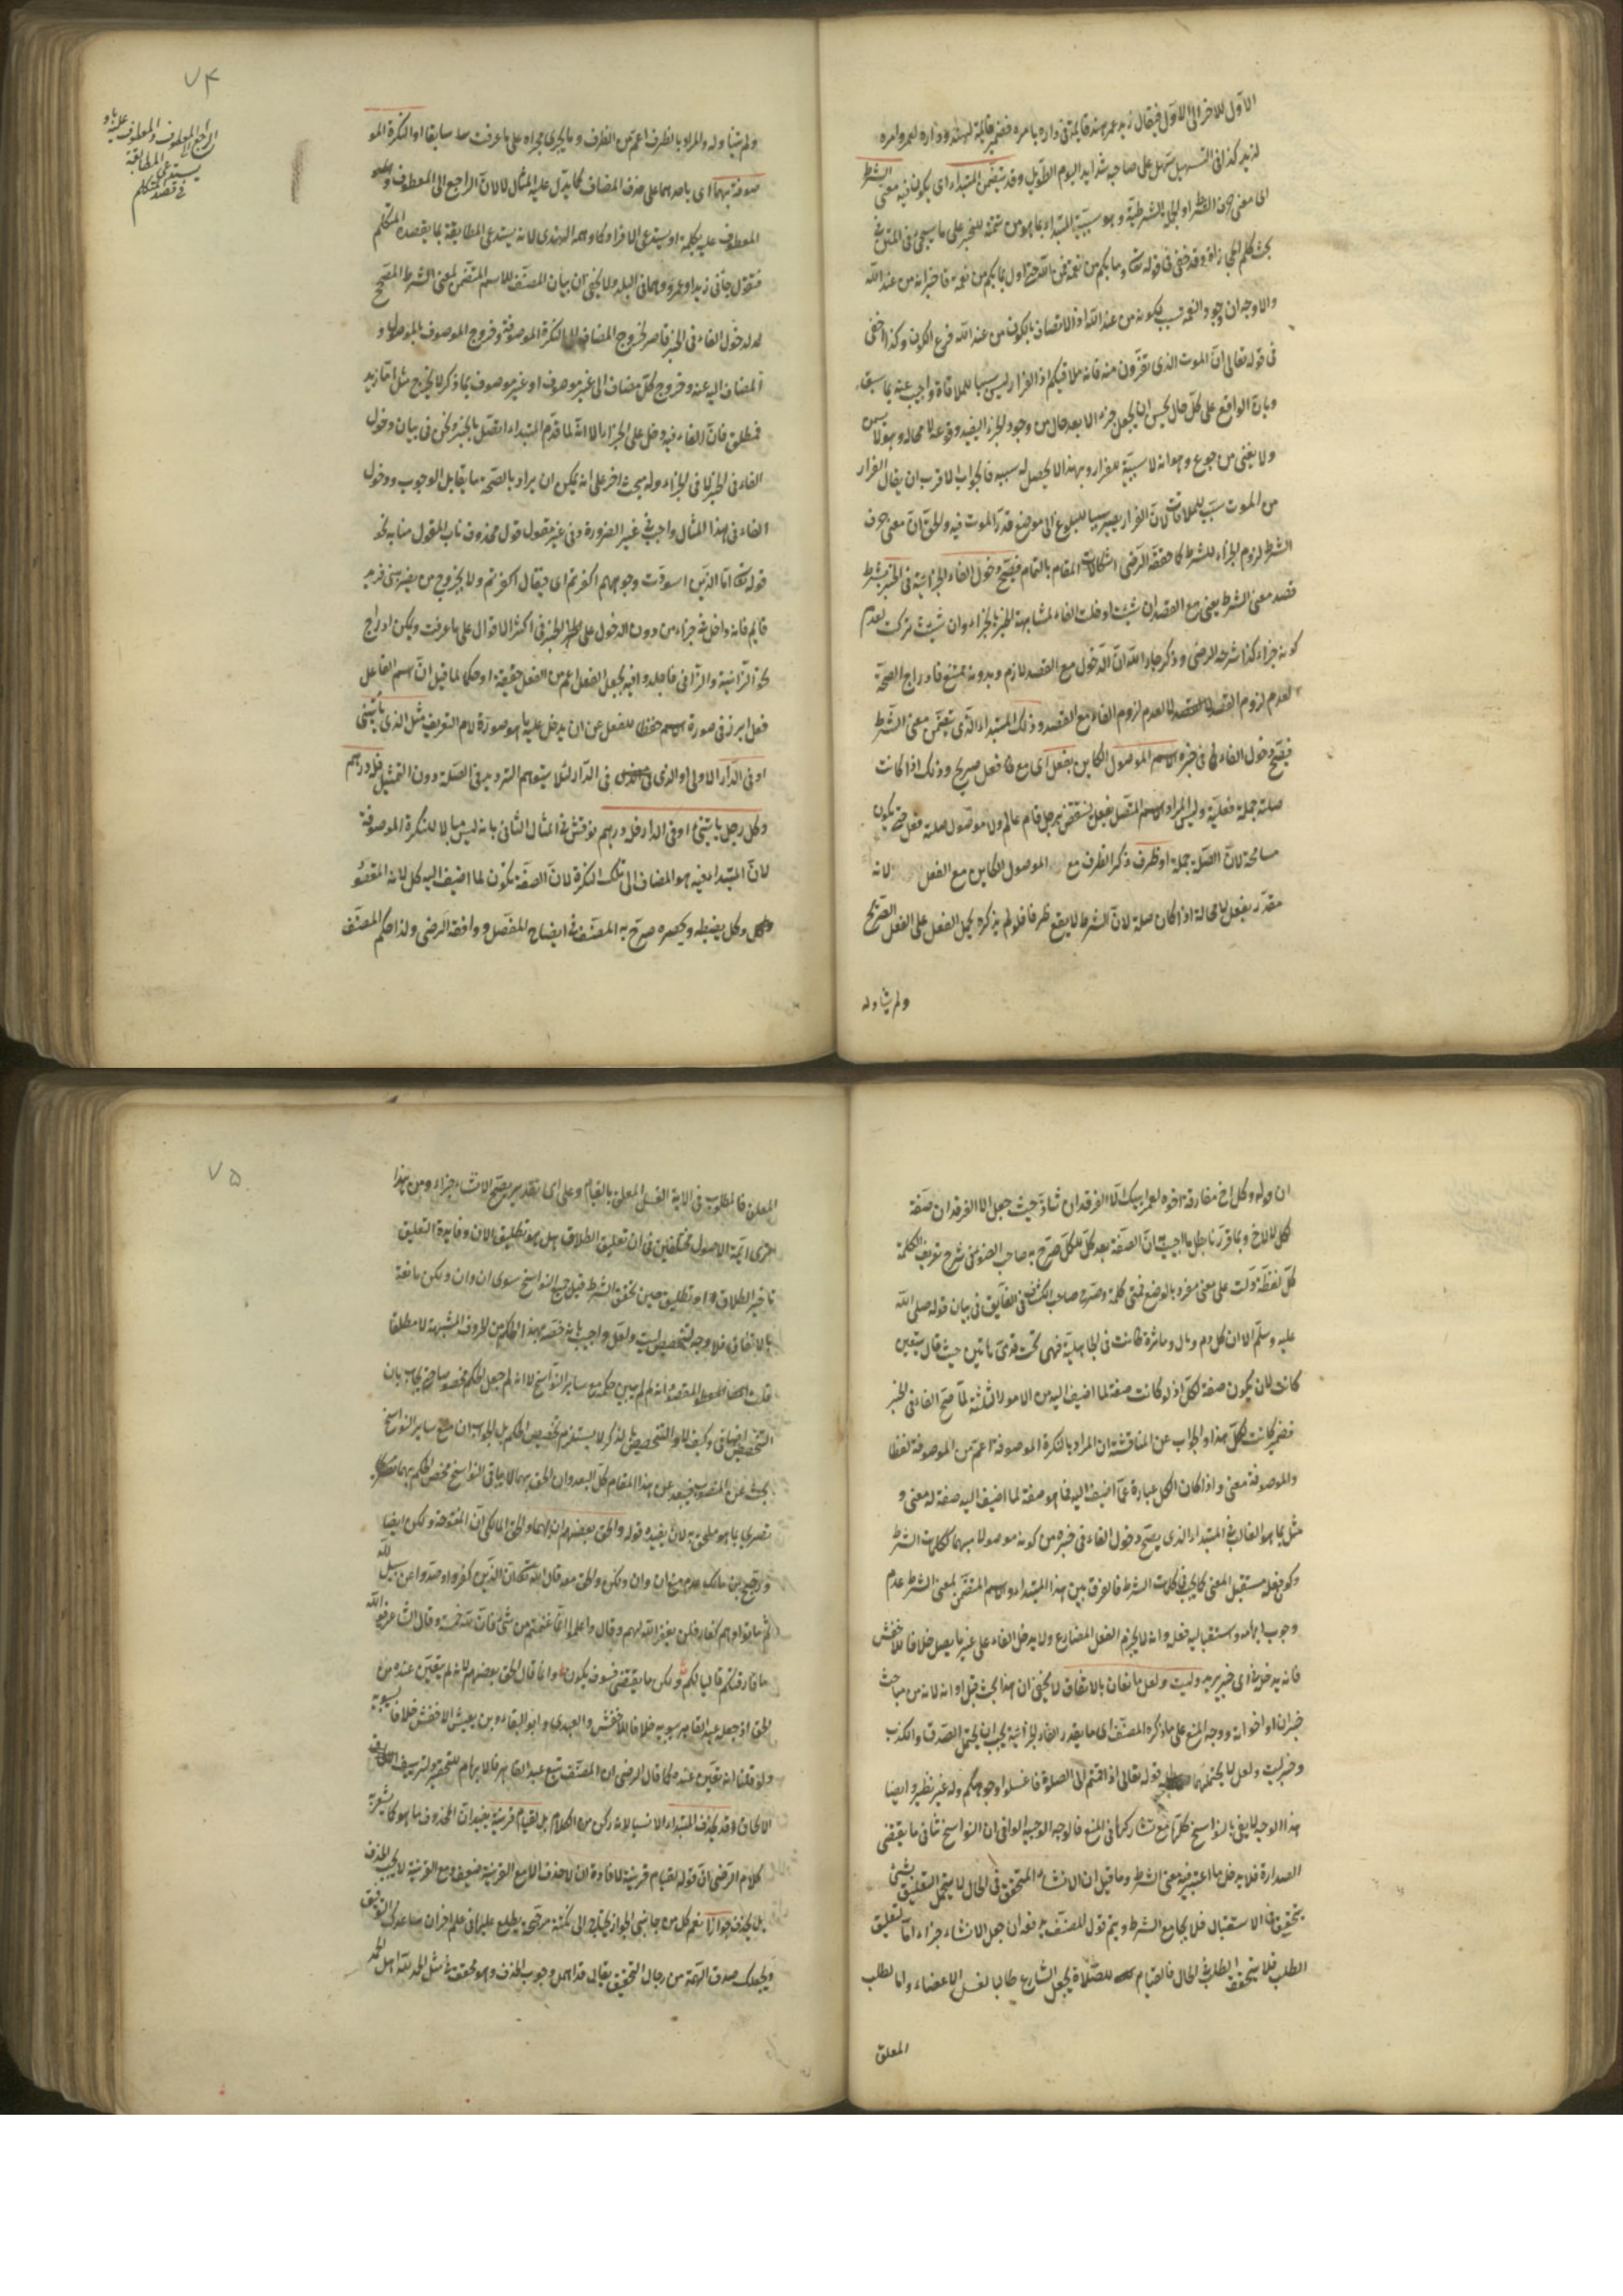 الاول للاخر الى الاول فيقال زيد عمر هند قايمة فى داره بامره فضمير قايمة لهند وداره لعمر وامره
لزيد كذا فى التسهيل سهل على صاحبه شدايد اليوم الطويل وقد يتضمن المبتداء اى يكون فيه معنى الشرط
اى معنى حرف الشرط او الجملة الشرطية وهو سببية المبتداء بما هو من تتمته للخبر على ما سيجئ فى المتن فى
بحث كلم المجازاة وقد خفى فى قوله تعالى وما بكم من نعمة فمن الله حتى اول بما بكم من نعمة فاخبر انه من عند الله
والاوجه ان وجود النعمة سبب لكونه من عند الله اذ الاتصاف بالكون من عند الله فرع الكون وكذا خفى
فى قوله تعالى ان الموت الذى تفرون منه فانه ملاقيكم اذ الفرار ليس سببا للملاقاة واجيب عنه بما سبق
وبان الواقع على كل حال يحسن ان يجعل جزاء لا بعد حال من وجود الجزاء ليفيد وقوعه لا محالة وهو لا يسمن
ولا يغنى من جوع وهو انه لا سببية للفرار وبهذا لا يحصل له سببية فالجواب الاقرب ان يقال الفرار
من الموت سبب للملاقات لان الفرار يصير سببا للبلوغ الى موضع قدر الموت فيه والحق ان معنى حرف
الشرط لزوم الجزاء للشرط كما حققه الرضى اشكالات المقام بالتمام فيصح دخول الفاء الجزائية فى الخبر بشرط
قصد معنى الشرط يعنى مع القصد ان شئت ادخلت الفاء لمشابهة الخبر بالجزاء وان شئت تركت لعدم
كونه جزاء كذا شرحه الرضى وذكر جار الله ان الدخول مع القصد لازم وبدونه ممتنع فادراج الصحة
لعدم لزوم القصد لا لعدم لزوم الفاء مع القصد وذلك المبتداء الذى يتضمن معنى الشرط
فيصح دخول الفاء فى خبره الاسم الموصول الكاين بفعل اى مع فعل صريح وذلك اذا كانت
صلته جملة فعلية وليس المراد الاسم المتصل بفعل لينتقض برجل قام عالم ولا موصول صلته فعل حتى يكون
مسامحة لان الصلة جملة او ظرف ذكر الظرف مع الموصول الكاين مع الفعل لانه
مقدر بفعل لا محالة اذا كان صلة لان الشرط لا يقع ظرفا فلو لم يذكره لحمل الفعل على الفعل الصريح
ولم يتناوله
٧٤
الراجع الى المعطوف والمعطوف عليه باو
يستدعى المطابقة
فى قصد المتكلم
ولم يتناوله والمراد بالظرف اعم من الظرف وما يجرى مجراه على ما عرفت سابقا او النكرة المو
صوفة بهما اى باحدهما على حذف المضاف كما يدل عليه المثال لا لان الراجع الى المعطوف و
المعطوف عليه بكلمة او يستدعى الافراد كما وهمه الهندى لانه يستدعى المطابقة بما يقصده المتكلم
فتقول جائنى زيد او عمرو وهما فى البلد ولا يخفى ان بيان المصنف للاسم المتضمن لمعنى الشرط المصحح
له لدخول الفاء فى الخبر قاصر لخروج المضاف الى النكرة الموصوفة وخروج الموصوف بالموصول و
المضاف اليه عنه وخروج كل مضاف الى غير موصوف او غير موصوف بما ذكر لا يخرج مثل اما زيد
فمنطلق فان الفاء فيه دخل على الجزاء الا انه لما قدم المبتداء اتصل بالخبر ونحن فى بيان دخول
الفاء فى الخبر لا فى الجزاء وله مبحث اخر على انه يمكن ان يراد بالصحة ما يقابل الوجوب ودخول
الفاء فى هذا المثال واجب فى غير الضرورة وفى غير مقول قول محذوف ناب المقول منابه نحو
قوله تعالى اما الذين اسودت وجوههم اكفرتم اى فيقال اكفرتم ولا يخرج من يضربنى فزيد
قايم فانه داخل فى جزاء من دون الدخول على الخبر فى اكثر الاقوال على ما عرفت ويمكن ادراج
نحو الزانية والزانى فاجلدوا فيه بجعل الفعل اعم من الفعل حقيقة او حكما لما قيل ان اسم الفاعل
فعل ابرز فى صورة الاسم حفظا للفعل عن ان يدخل عليه ما هو صورة لام التعريف مثل الذى ياتينى
او فى الدار الاولى او الذى فى الدار لئلا يتوهم الترديد فى الصلة دون التمثيل فله درهم
وكل رجل ياتينى او فى الدار فله درهم نوقش فى المثال الثانى بانه ليس مثالا للنكرة الموصوفة
لان المبتداء فيه هو المضاف الى تلك النكرة لان الصفة تكون لما اضيف اليه كل لانه المقصود
وكل يضبطه ويحصره صرح به المصنف فى ايضاح المفصل ووافقه الرضى ولذا حكم المصنف
ان قوله وكل اخ مفارقه اخوه لعمر ابيك الا الفرقدان شاذ حيث جعل الا الفرقدان صفة
لكل لا لاخ وبما قررنا جل ما اجيب ان الصفة بعد كل للكل صرح به صاحب الضوء فى شرح تعريف الكلمة
كل لفظة دلت على معنى مفرد بالوضع فهى كلمة وصرح صاحب الكشاف فى الفايق فى بيان قوله صلى الله
عليه وسلم الا ان كل دم ومال وماثرة كانت فى الجاهلية فهى تحت قدمى هاتين حيث قال يتعين
كانت لان يكون صفة لكل اذ لو كانت صفة لما اضيف اليه من الامور الثلثة لما صح الفاء فى الخبر
فضمير كانت لكل هذا والجواب عن المناقشة ان المراد بالنكرة الموصوفة اعم من الموصوفة لفظا
والموصوفة معنى واذا كان الكل عبارة عما اضيف اليه فما هو صفة لما اضيف اليه صفة له معنى و
مثل بما هو الغالب فى المبتداء الذى يصح دخول الفاء فى خبره من كونه موصولا مبهما ككلمات الشرط
وكون فعله مستقبل المعنى كما يجب فى كلمات الشرط فالفرق بين هذا المبتداء والاسم المتضمن لمعنى الشرط عدم
وجوب ابهامه واستقبالية فعله وانه لا يجزم الفعل المضارع ولا يدخل الفاء على غير ما يصل خلافا للاخفش
فانه يدخل فى اى خبر يريد وليت ولعل مانعان بالاتفاق لا يخفى ان هذا بحث قبل اوانه لانه من مباحث
خبر ان او اخواته ووجه المنع على ما ذكره المصنف اى ما يقدر الفاء الجزائية يجب ان يحتمل الصدق والكذب
وخبر ليت ولعل لا يحتملهما قوله تعالى اذا قمتم الى الصلوة فاغسلوا وجوهكم وله غير نظير وايضا
هذا الوجه لا يفى بالنواسخ كلها مع تشاركها فى المنع فالوجه الوجيه الوافى ان النواسخ تنافى ما يقتضى
الصدارة فلا يدخل ما اعتبر فيه معنى الشرط وما قيل ان الانشاء المتحقق فى الحال لا يحتمل التعليق بشئ
يتحقق فى الاستقبال فلا يجامع الشرط ويتم قول المصنف مدفوع بان جعل الانشاء جزاء اما تعليق
الطلب فلا يتحقق الطلب فى الحال فالقيام للصلاة يجعل الشارع طالبا لغسل الاعضاء واما لطلب
المعلق
٧٥
المعلق فالمطلوب فى الاية الغسل المعلق بالقيام وعلى اى تقدير يصح الانشاء جزاء ومن هذا
ترى ائمة الاصول مختلفين فى ان تعليق الطلاق هل هو تطليق الان وفايدة التعليق
تاخير الطلاق او تطليق حين تحقق الشرط قيل جميع النواسخ سوى ان وان ولكن مانعة
بالاتفاق فلا وجه لتخصيص ليت ولعل واجيب بانه خصه بهذا الحكم من الحروف المشبهة لا مطلقا
قلت المقصود انه لم لم يبين حكمه مع ساير النواسخ لا انه لم جعل الحكم مخصوصا حتى يجاب بان
التخصيص اضافى وكيف لا والتخصيص بالذكر لا يستلزم تخصيص الحكم بل الجواب ان منع ساير النواسخ
بحث عن المنصوب فيبعد عن هذا المقام كل البعد وان الحق بهما لا بباقى النواسخ فخص الحكم بهما
تصرى بما هو ملحق به لان يفيده قوله والحق بعضهم ان بهما والحق المالكى ان المفتوحة ولكن ايضا
ورجح ابن مالك عدم منع ان وان ولكن والحق معه قال الله تعالى ان الذين كفروا وصدوا عن سبيل الله
ثم ماتوا وهم كفار فلن يغفر الله لهم وقال واعلموا انما غنمتم من شئ فان لله خمسه وقال الشاعر فوالله
ما فارقتكم قاليا لكم ولكن ما يقضى فسوف يكون وانما قال الحق بعضهم لانه لم يتعين عنده من
الحق اذ جعل عبد القاهر سيبويه خلافا للاخفش والعبدى وابو البقاء وبن يعيش الاخفش خلافا لسيبويه
ولو قلنا انه تعين عنده كما قال الرضى ان المصنف تبع عبد القاهر فالابهام للتحقير ولتزييف
الالحاق وقد يحذف المبتداء الانسب لانه ركن من الكلام بل لقيام قرينة يفيد ان المحذوف ما هو كما يشعر به
كلام الرضى ان قوله لقيام قرينة لافادة ان الاحذف الا مع القرينة ضعيف ومع القرينة لا يجب الحذف
بل يحذف جوازا نعم كل من جانبى الجواز يحتاج الى نكتة مرجحة يطلع عليها فى علم اخر ان ساعدك التوفيق
ويجعلك صدق الهمة من رجال التحقيق يقال قد اهمل وجوب الحذف وهو متحقق فى مثل الحمد لله اهل الحمد